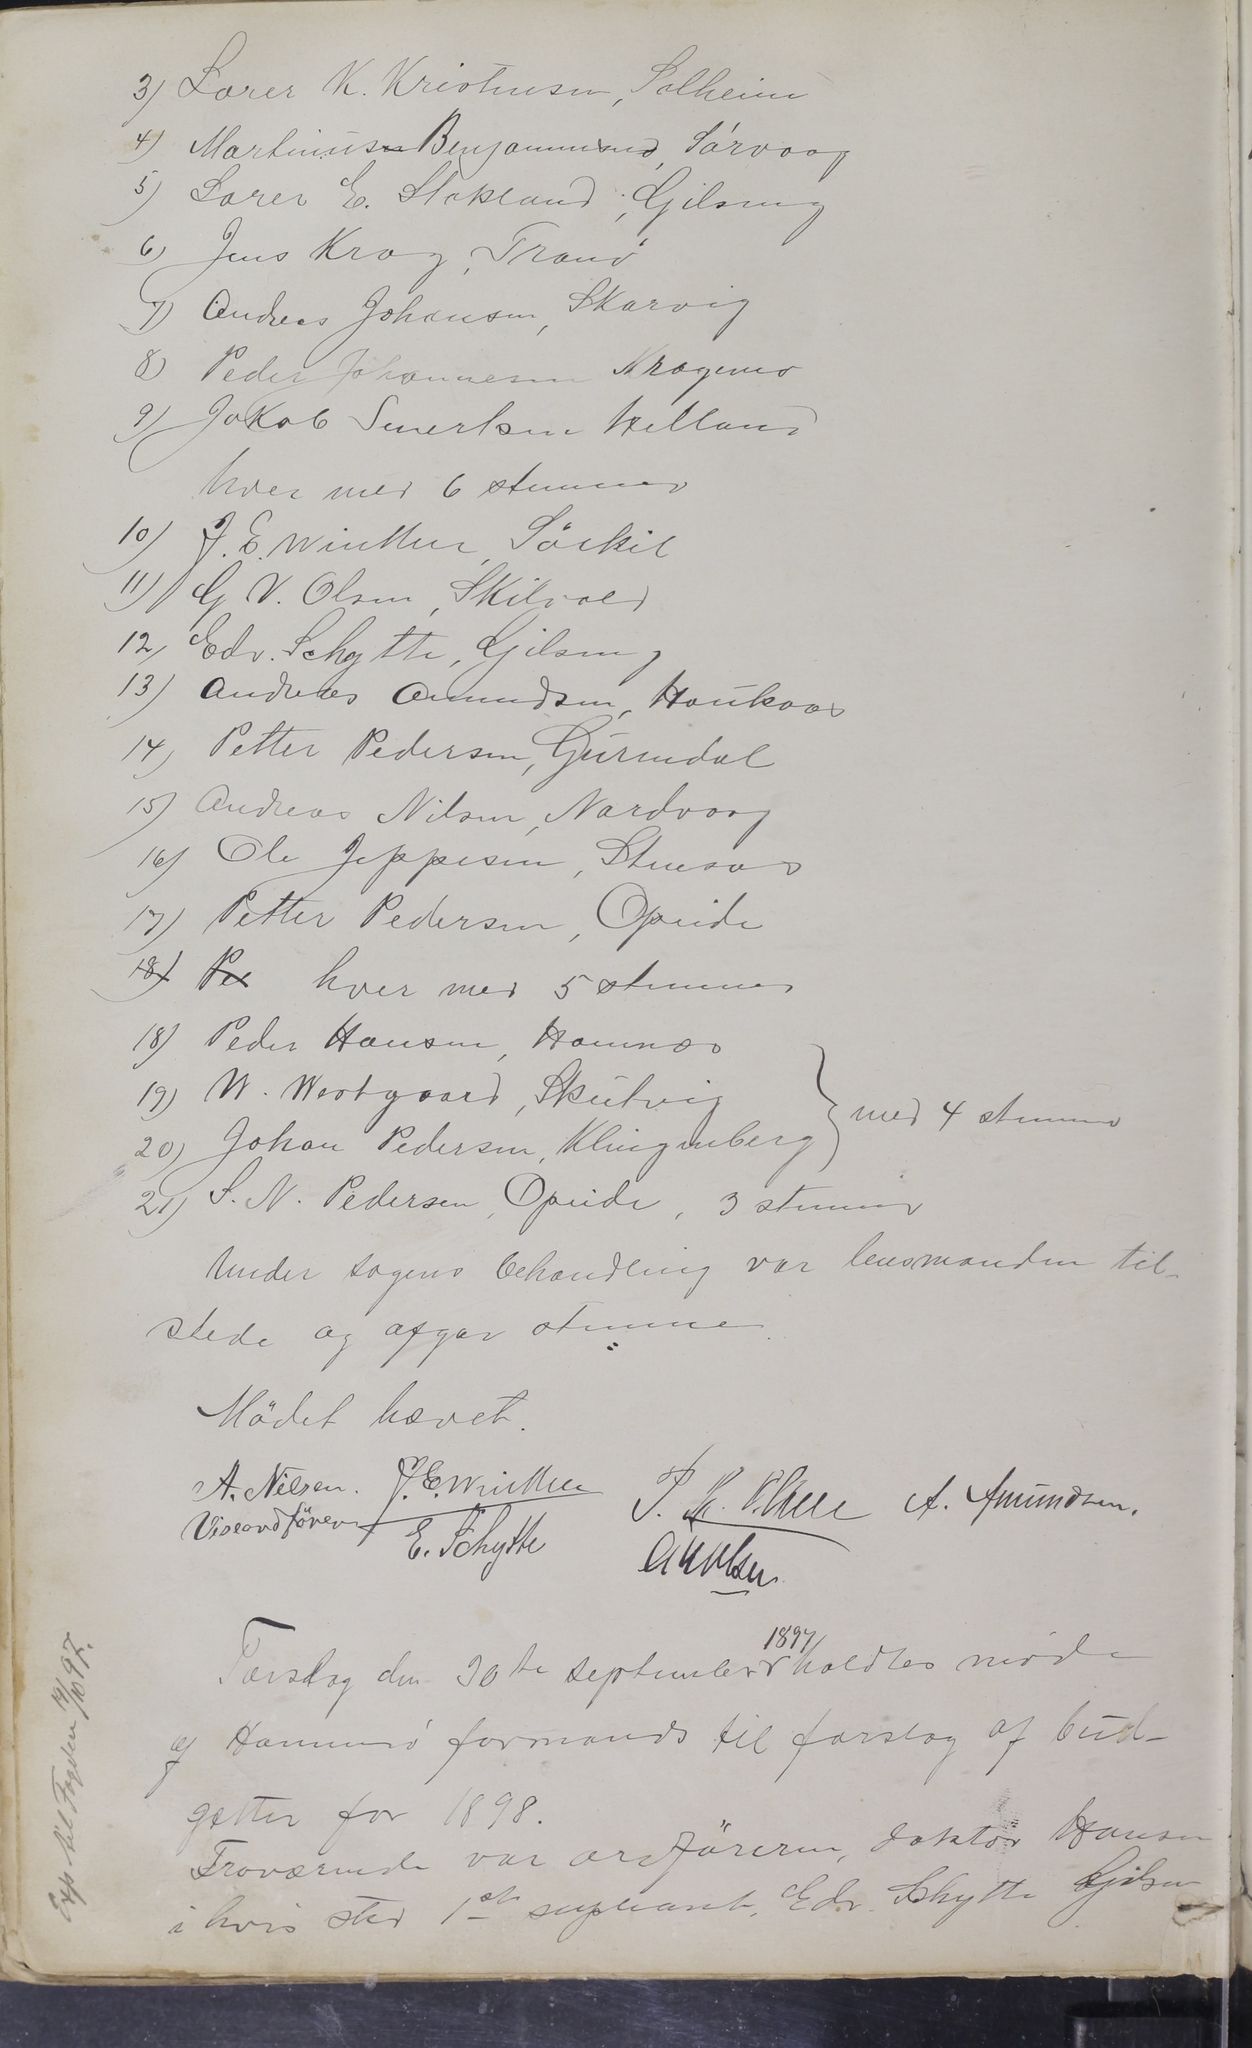 3) Sører K. Kristensen, Solheim
4) Martinus Benjaminsen, Sørvaag
5) Sører E. Stokland, Gilsung
6) Jens Krog, Tranö
7) Andreas Johansen, Skarvig
8) Peder Johannesen Kragemo
9) Jakob Sivertsen Helland
hver med 6 stemmer
10) J. E. Winther, Sörkil
11) G V. Olsen, Skilvold
12) Edv. Schytte, Gilsung
13) Andreas Amundsen, Haukaas
14) Petter Pedersen, Gürendal
15) Andreas Nilsen, Nordvaag
16) Ole Jeppesen,
17) Petter Pedersen, Opeide
18) Pet hver med 5 stemmer
18) Peder Hansen, Hamnes
19) W. Westgaard, Skutvig
20) Johan Pedersen, Klingenberg } med 4 stemmer
21) S. N. Pedersen, Opeide, 3 stemmer
Under sagens behandling var lensmanden til-
stede og afgav stemme.
Mödet hævet.
A. Nilsen. J. E. Winther A. Amundsen.
Viseordförer E. Schytte
Torsdag den 30te september 1897 holdtes möde
af Hammerö formands til forslag af bud-
getter for 1898.
Fraværende var ordföreren, doktor Hansen
i hvis sted 1ste supleant, Edv. Schytte Gilsen
Exp til Fogden 14/10 97.